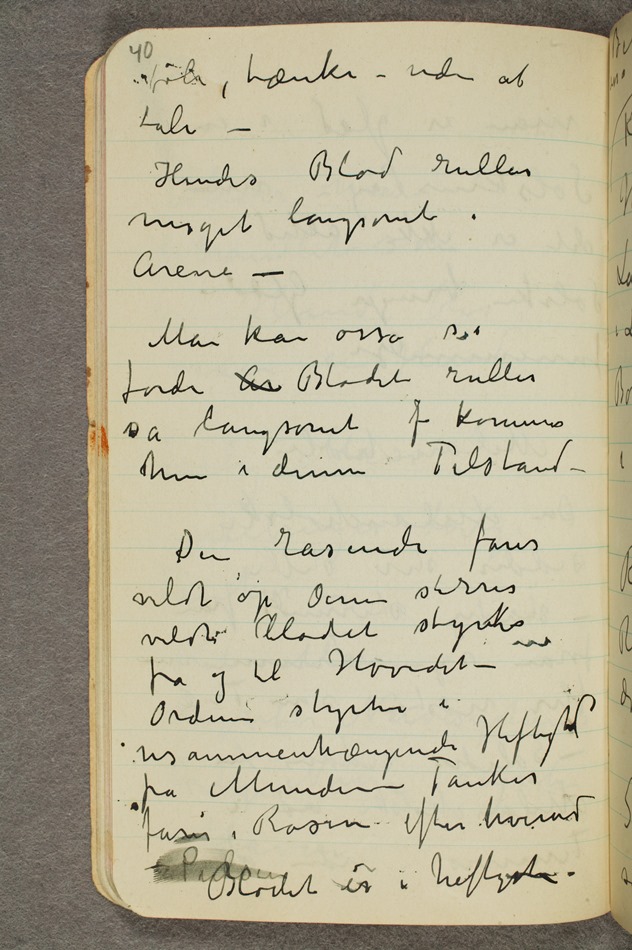 40
føle, tænke – uden at
tale –
Hendes Blod ruller
meget langsomt i
Arene –
Man kan osså si
fordi Blodet ruller
så langsomt kommer
hun i denne Tilstand –
Den rasende farer
vildt op Denne stirrer
vildt Blodet styrter
fra og til Hovedet –
Ordene styrter i
usammenhængende Heftighed
fra Munden – Tanker
farer i Rasen efter hverand
Blodet er i heftigste